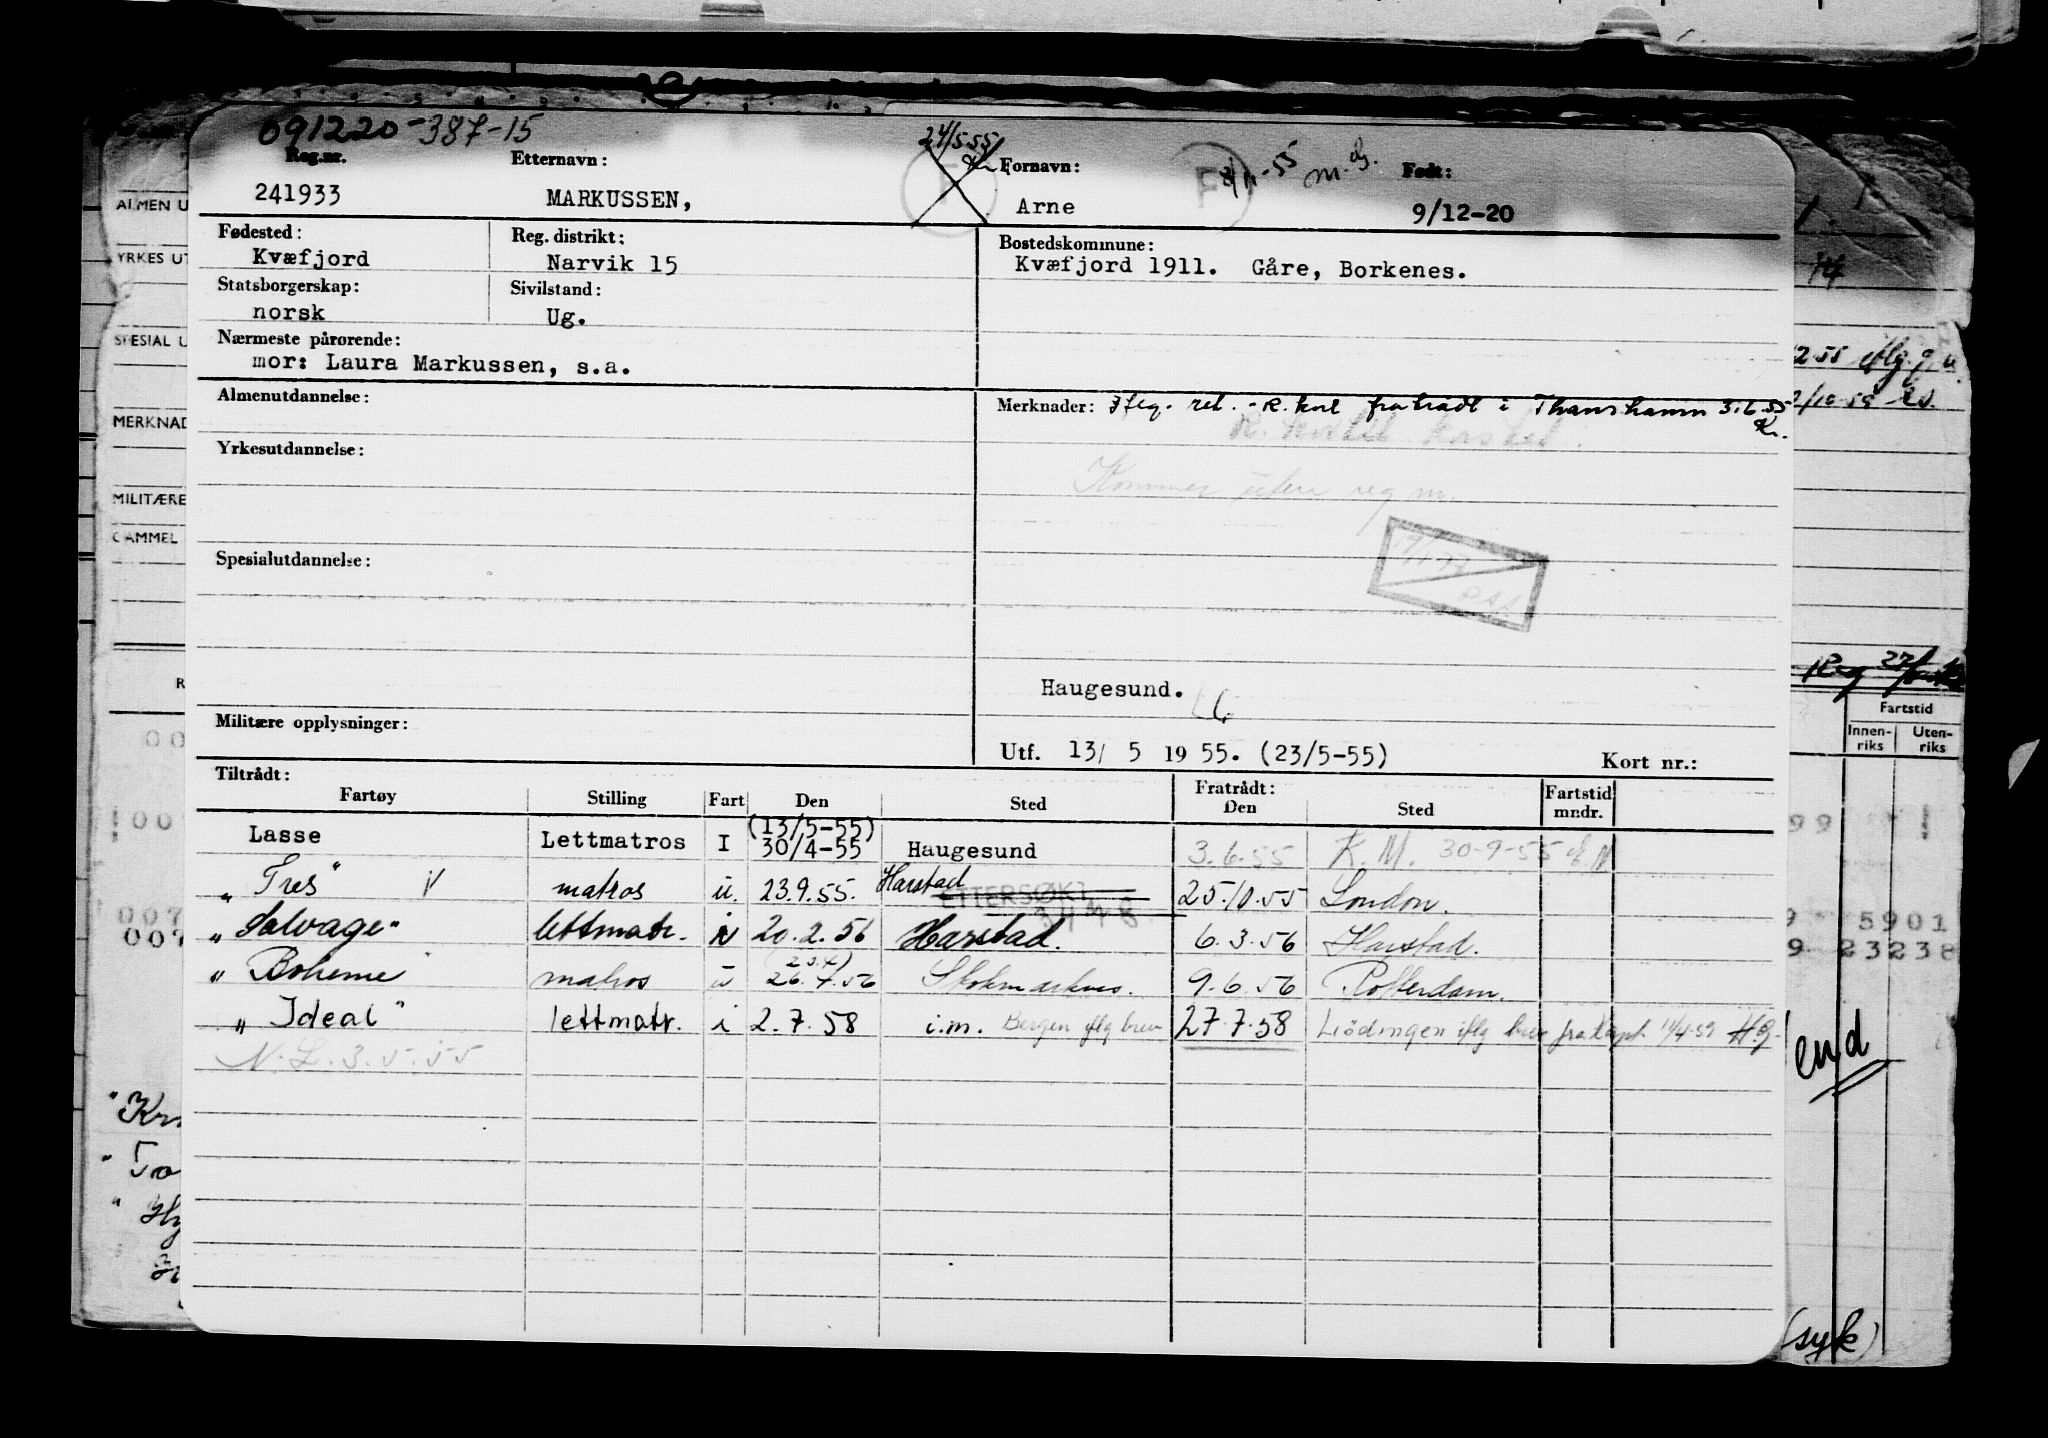 091220-387-15
24/5 55
Reg.nr. Etternavn: Fornavn: Født:
241933 MARKUSSEN, Arne 9/12-20
Fødested: Reg. distrikt: Bostedskommune:
Kvæfjord Narvik 15 Kvæfjord 1911. Gåre, Borkenes.
Statsborgerskap: Sivilstand:
norsk Ug.
Nærmeste pårørende:
mor: Laura Markussen, s.a.
Almenutdannelse: Merknader: Iflg. ret. - R. kort fratrådt i Thamshamn 3.6.55
Kr.
Yrkesutdannelse:
Kommer uten reg nr.
Spesialutdannelse:
Haugesund.
Militære opplysninger:
Utf. 13/ 5 1955. (23/5-55) Kort nr.:
Tiltrådt: Fratrådt:
Fartøy Stilling Fart Den Sted Den Sted Fartstid mndr.
Lasse Lettmatros I (13/5-55) 30/4-55 Haugesund 3.6.55 K.M. 30-9-55
"Tres" matros u. 23.9.55. Harstad 25.10.55 London.
ETTERSØKT
"Salvage" lettmatr. i 20.2.56 Harstad. 6.3.56 Harstad.
"Boheme matros u 26.4.56 Stokmarknes. 9.6.56 Rotterdam.
"Ideal" lettmatr. i 2.7.58 i.m. Bergen iflg brev 27.7.58 Lödingen iflg brev fra kapt. 14/4-59 H.G.
N.L. 3.5.55
ALMEN U
YRKES UT
SPESIAL U
MERKNAD
MILITÆRE
GAMMEL
Fartstid
Innen-riks Uten-riks
5901
23238
end
(syk)